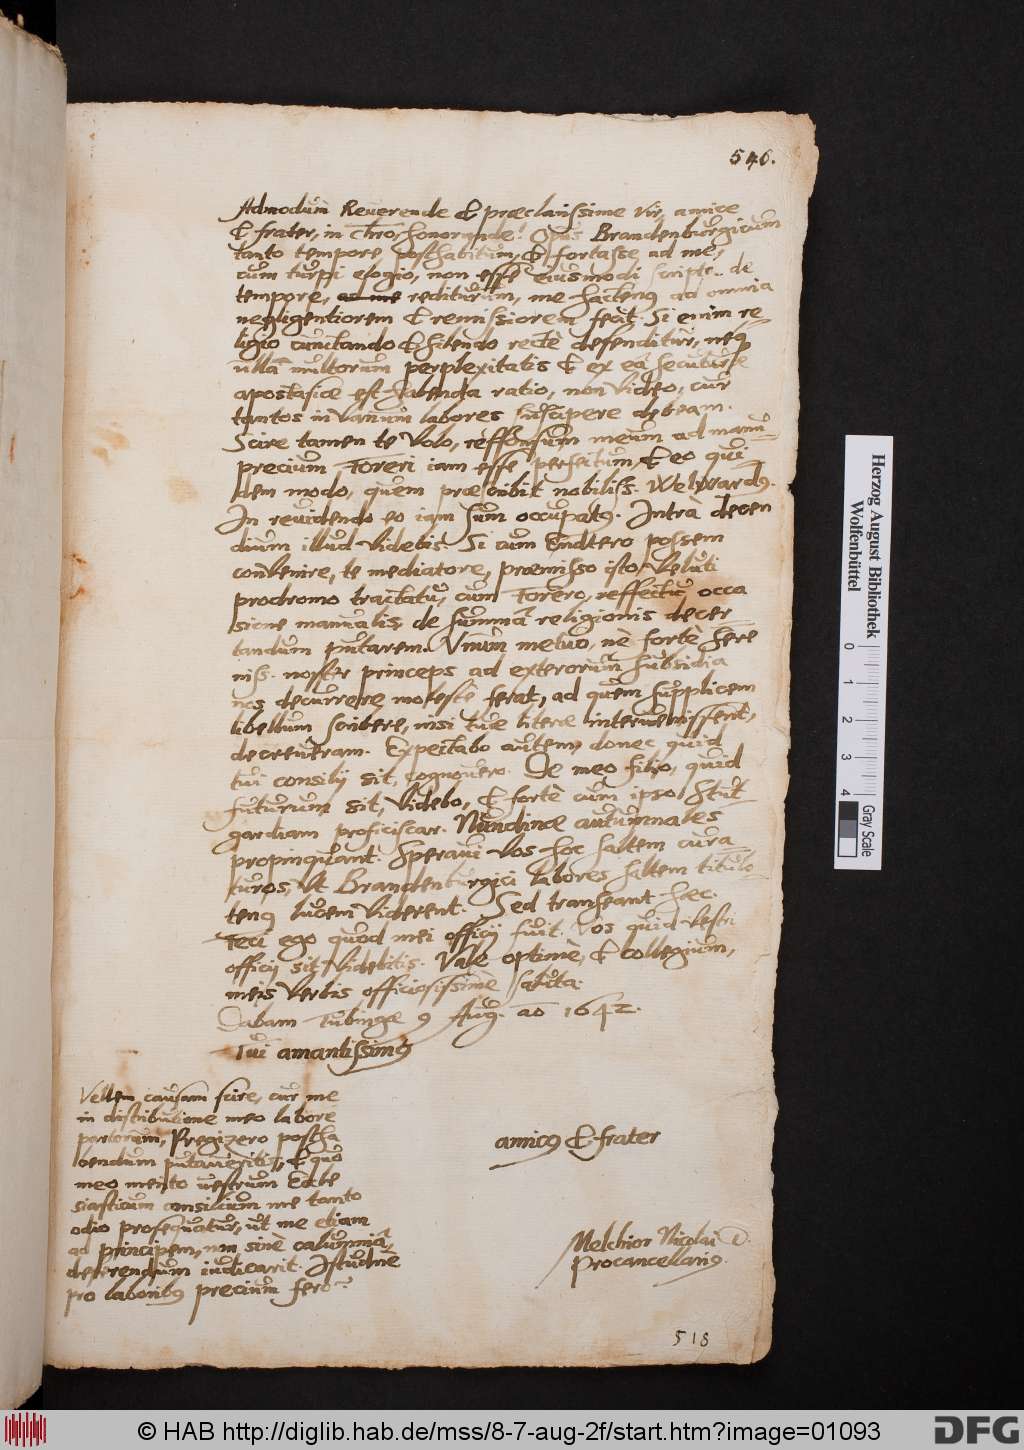 546.
Admodum Reverende & præclarissime vir, amice
& frater, in Chro, honorande! Opus Brandenburgicum
tanto tempore posthabitum, & fortasse ad me,
cum turpi elogio, non esse eiusmodi de
tempore, rediturum, me hactenq ad omnia
negligentiorem & remissiorem fecit. Si enim re-
ligio cunctando & silendo rectè defenditur, neq
ulla multorum perplexitatis & ex ea secuturæ
apostasiæ est habenda ratio, non video, cur
tantos in vanum labores suscipere debeam.
Scire tamen te volo, responsum meum ad manu-
precium Foreri iam esse perfectum, & eo qui-
dem modo, quem præscribit nobiliss.
In revidendo eo iam sum occupatq. Intrà decen
dium illud videbis. Si cum Endtero possem
convenire, te mediatore, præmisso isto veluti
prodromo tractatu, cum Forero, occa
sione manualis, de summa religionis decer
tandum putarem. Unum metuo, nè fortè Sere
niss. noster princeps ad exterorum subsidia
nos decurrere molestè ferat, ad quem supplicem
libellum scribere, nisi tuæ literæ intervenissent,
decreveram. Expectabo autem, donec quid
tui consilij sit, cognovero. De meo filio, quid
futurum sit, videbo, & fortè cum ipso Stut
gardiam proficiscar. Nundinæ autumnales
propinquant. Speravi vos hoc saltem cura-
turos, ut Brandenburgici labores saltem titulo-
tenq lucem viderent. Sed transeant hæc.
Feci ego quod mei officij fuit. Vos quid vestri
officij sit, videbitis. Vale optimè, & collegium,
meis verbis officiosissimè saluta.
Dabam Tubingæ 9 Aug. ao 1642.
Tui amantissimq
Vellem causam scire, cur me
in distributione meo labore
partorum, Pregizero postha
bendum putaveritis, & quo
meo merito vestrum Eccle
siasticum consilium me tanto
odio prosequatur, ut me etiam
ad principem, non sinè calumnia,
deferendum iudicarit. Istudne
pro laboribq precium fero?
amicq & frater
Melchior Nicolai D.
Procancellariq.
518
Herzog August Bibliothek
Wolfenbüttel
0 1 2 3 4
Gray Scale
© HAB http://diglib.hab.de/mss/8-7-aug-2f/start.htm?image=01093
DFG